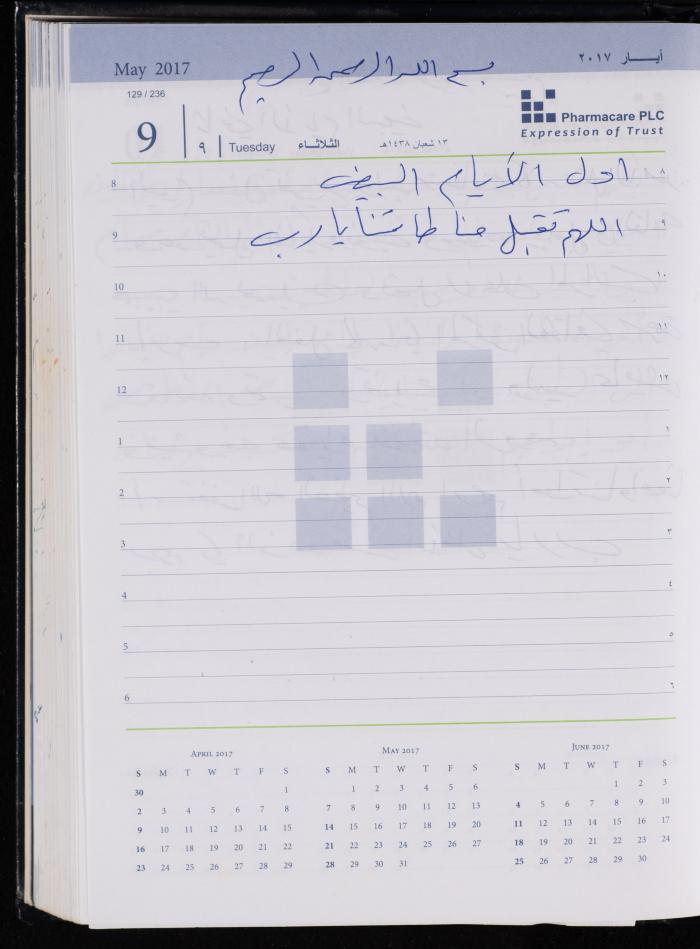 May 2017
أيـــار ٢٠١٧
بسم الله الرحمن الرحيم
129 / 236
9
٩
Tuesday
الثلاثـــاء
١٣ شعبان ١٤٣٨هـ
Pharmacare PLC
Expression of Trust
8 اول الأيام البيض ٨
9 اللهم تقبل منا طاعتنا يارب ٩
10 ١٠
11 ١١
12 ١٢
1 ١
2 ٢
3 ٣
4 ٤
5 ٥
6 ٦
April 2017
S M T W T F S
30 1
2 3 4 5 6 7 8
9 10 11 12 13 14 15
16 17 18 19 20 21 22
23 24 25 26 27 28 29
May 2017
S M T W T F S
1 2 3 4 5 6
7 8 9 10 11 12 13
14 15 16 17 18 19 20
21 22 23 24 25 26 27
28 29 30 31
June 2017
S M T W T F S
1 2 3
4 5 6 7 8 9 10
11 12 13 14 15 16 17
18 19 20 21 22 23 24
25 26 27 28 29 30